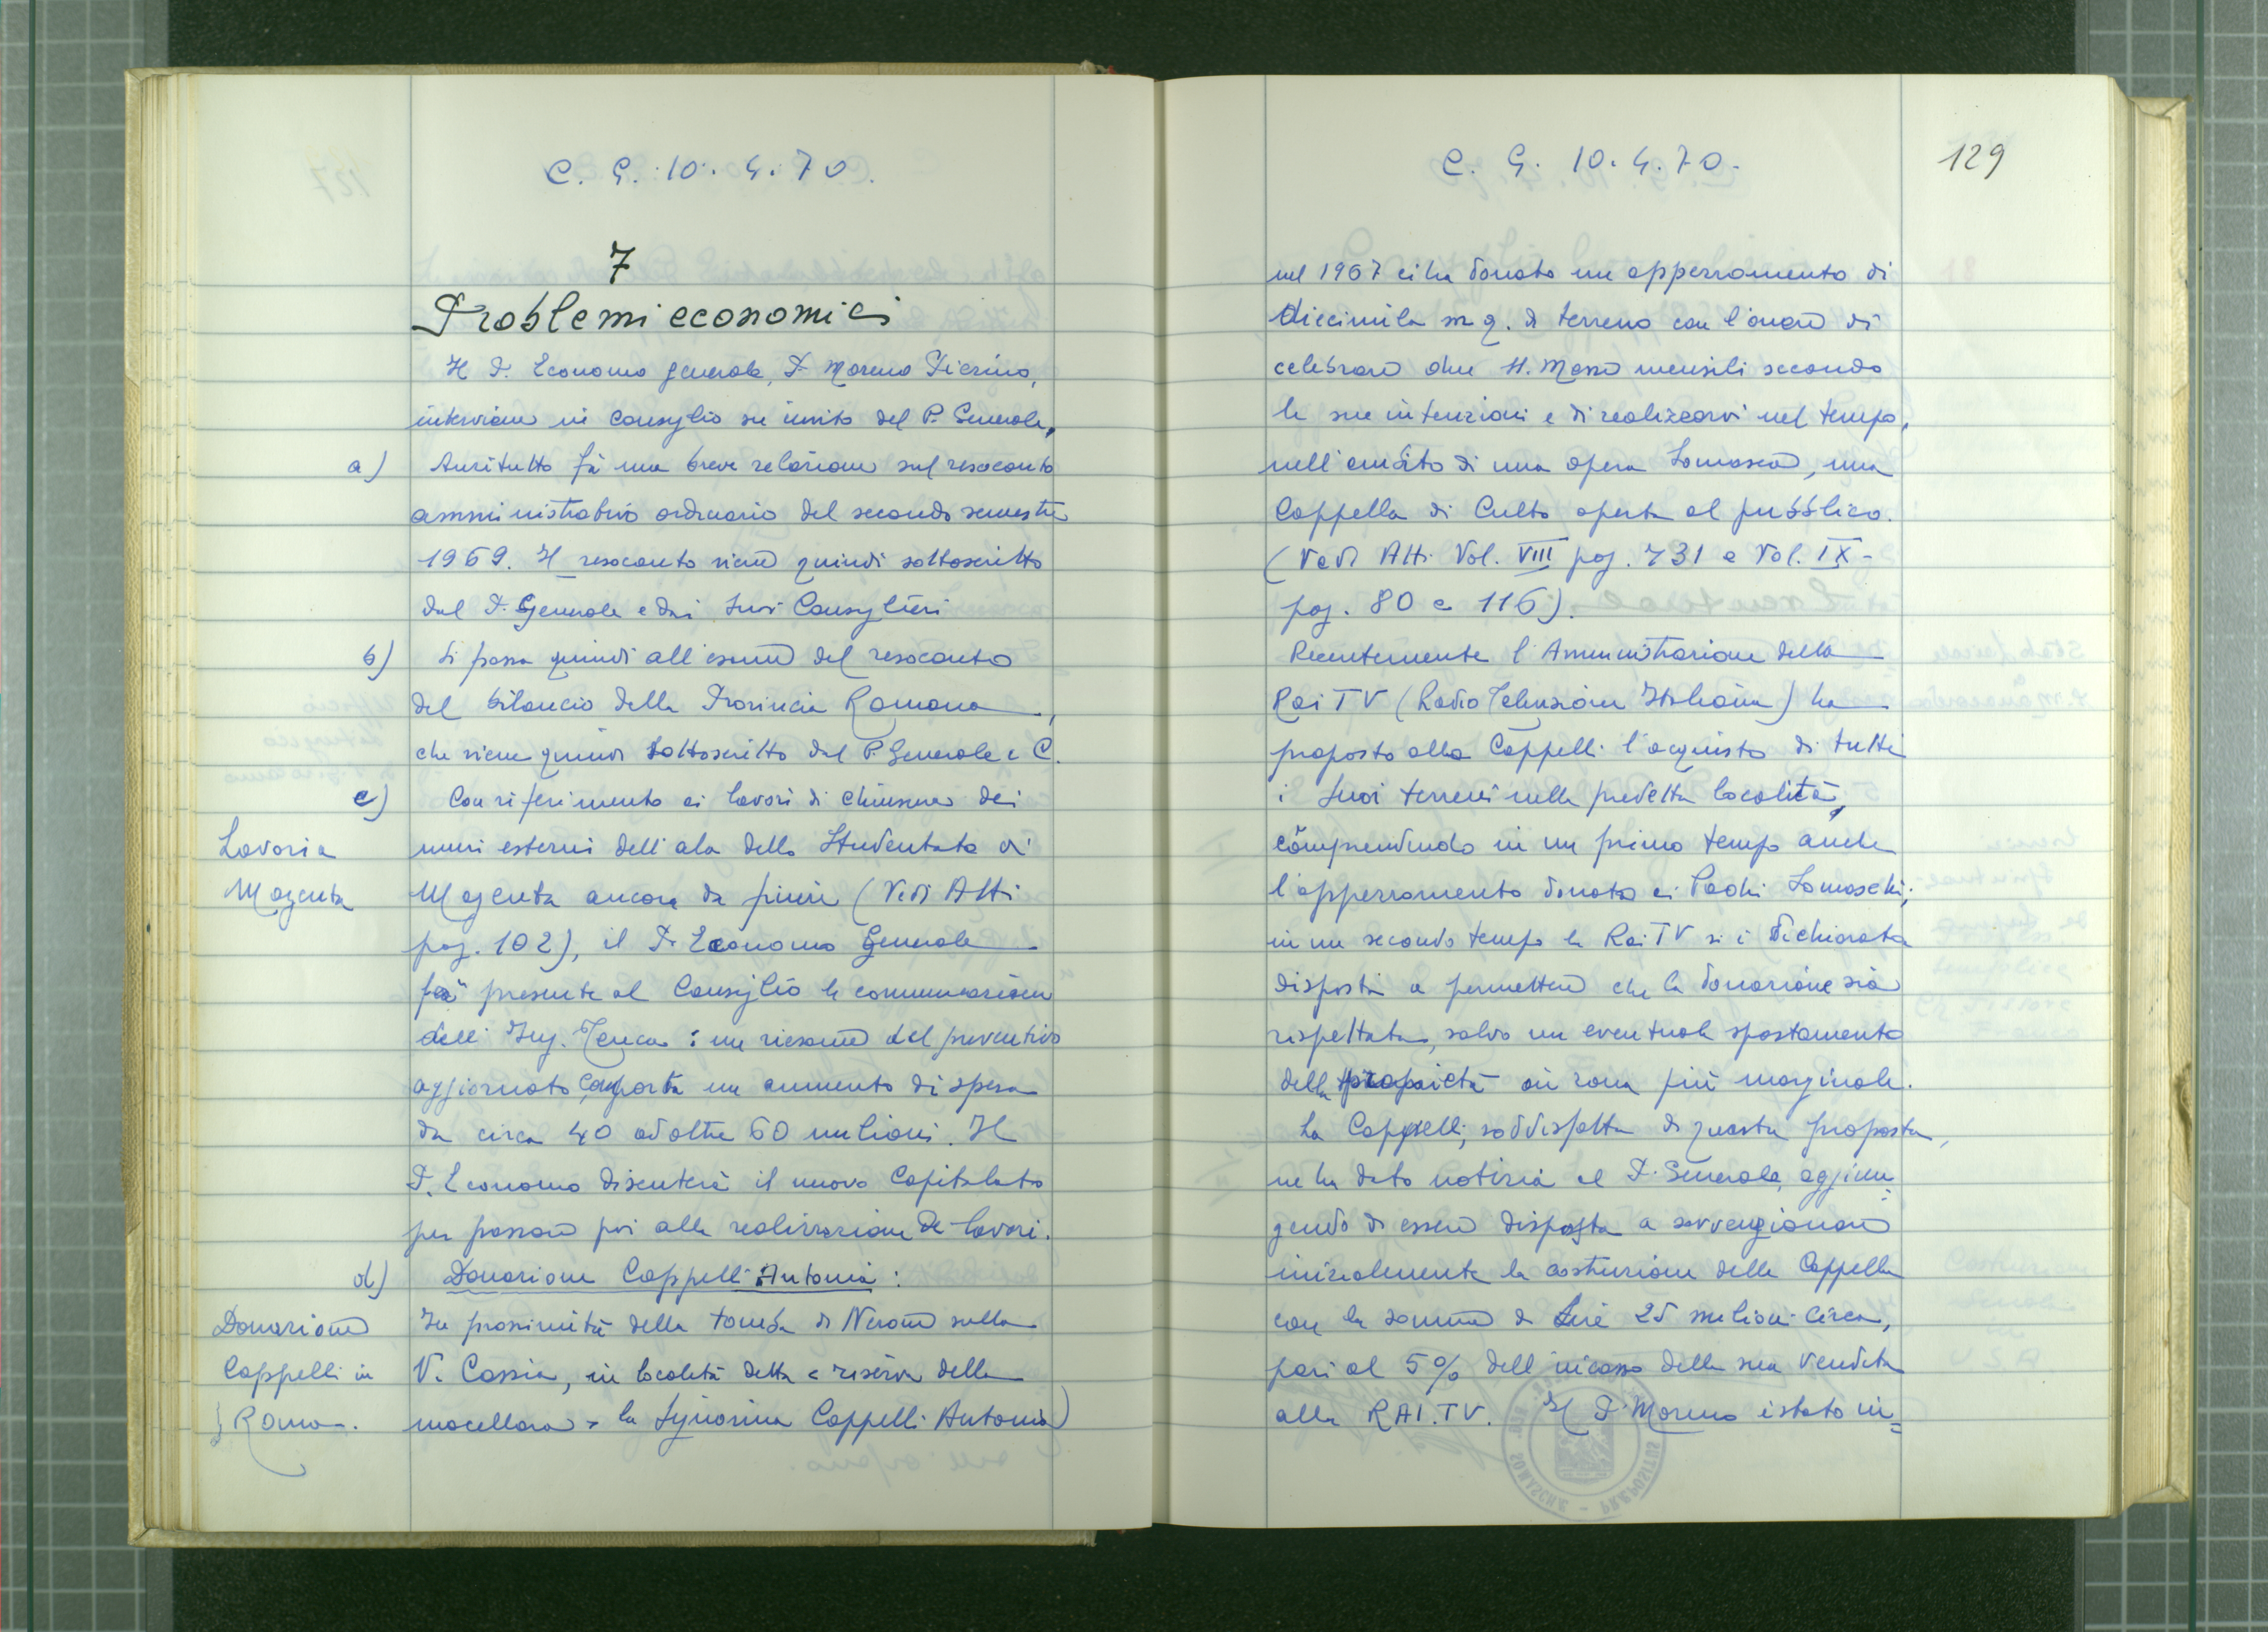 C. G. 10. 4. 70.
7
Problemi economici
Il P. Economo generale, P. Moreno Pierino,
interviene in consiglio su invito del P. Generale.
a) Anzitutto fà una breve relazione sul resoconto
amministrativo ordinario del secondo semestre
1969. Il resoconto viene quindi sottoscritto
dal P. Generale e dai suoi Consiglieri
b) Si passa quindi all'esame del resoconto
del bilancio della Provincia Romana,
che viene quindi sottoscritto dal P. Generale e C.
c) Con riferimento ai lavori di chiusura dei
Lavori a
muri esterni dell'ala dello Studentato di
Magenta
Magenta ancora da finire (Vedi Atti
pag. 102), il P. Economo Generale
fa presente al Consiglio la comunicazione
dell'Ing. Tenca: un riesame del preventivo
aggiornato comporta un aumento di spesa
da circa 40 ad oltre 60 milioni. Il
P. Economo discuterà il nuovo Capitolato
per passare poi alla realizzazione dei lavori.
d) Donazione Cappelli Antonia:
Donazione
In prossimità della tomba di Nerone sulla
Cappelli in
V. Cassia, in località detta « riserva della
Roma.
macellara » la Signorina Cappelli Antonia
C. G. 10. 4. 70.
129
nel 1967 ci ha donato un apperramento di
diecimila m q. di terreno con l'onere di
celebrare due SS. Messe mensili secondo
le sue intenzioni e di realizzarvi nel tempo,
nell'ambito di una opera Somasca, una
Cappella di Culto aperta al pubblico.
(Vedi Atti Vol. VIII pag. 731 e Vol. IX -
pag. 80 e 116).
Recentemente l'Amministrazione della
Rai TV (Radio Televisione Italiana) ha
proposto alla Cappelli l'acquisto di tutti
i suoi terreni nella predetta località,
comprendendo in un primo tempo anche
l'apperramento donato ai Padri Somaschi;
in un secondo tempo la Rai TV si è dichiarata
disposta a permettere che la donazione sia
rispettata, salvo un eventuale spostamento
della proprietà in zona più marginale.
La Cappelli, soddisfatta di questa proposta,
ne ha dato notizia al P. Generale, aggiun=
gendo di essere disposta a sovvenzionare
inizialmente la costruzione della Cappella
con la somma di Lire 25 milioni circa,
pari al 5% dell'incasso della sua vendita
alla RAI.TV. Il P. Moreno è stato in=